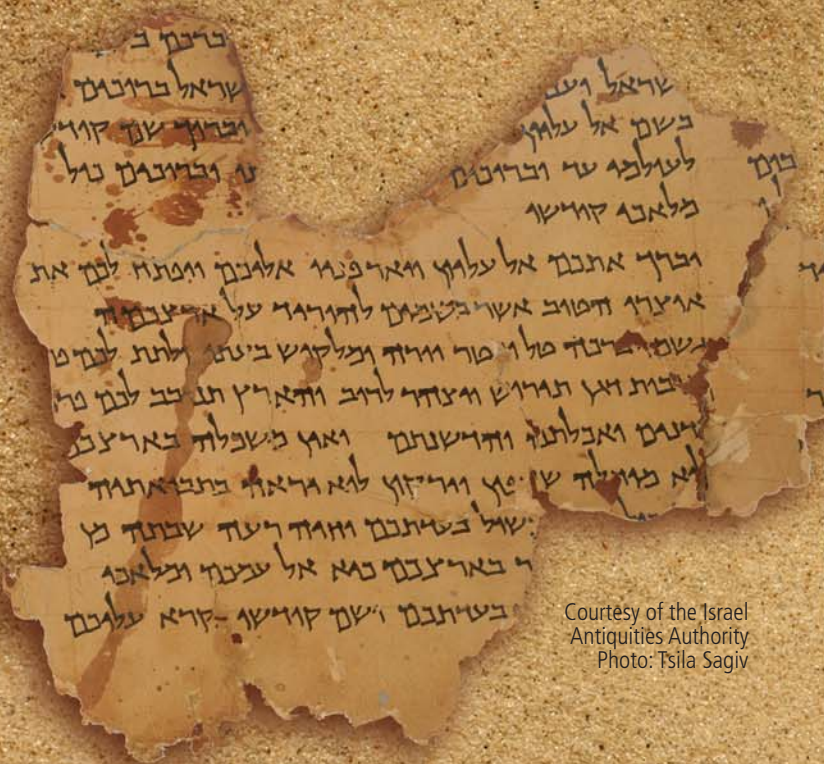 ברכם ב
שראל וענ שראל ברוכים
בשם אל עליון וברוך שם קודש
לעולמי עד וברוכים וברוכים כול
מלאכי קודשו
יברך אתכם אל עליון ויאר פניו אליכם ויפתח לכם את
אוצרו הטוב אשר בשמים להוריד על ארצכם
גשמי ברכה טל ומטר יורה ומלקוש בעתו ולתת לכם
בות דגן תירוש ויצהר לרוב והארץ תנובב לכם פרי
דנים ואכלתם והדשנתם ואין משכלה בארצכ
ולוא מוחלה שדפון וירקון לוא יראה בתבואתיה
כול שול בעדתכם וחיה רעה שבתה מן
ר בארצכם כיא אל עמכם ומלאכי
בעדתכם ושם קודשו נקרא עליכם
Courtesy of the Israel
Antiquities Authority
Photo: Tsila Sagiv